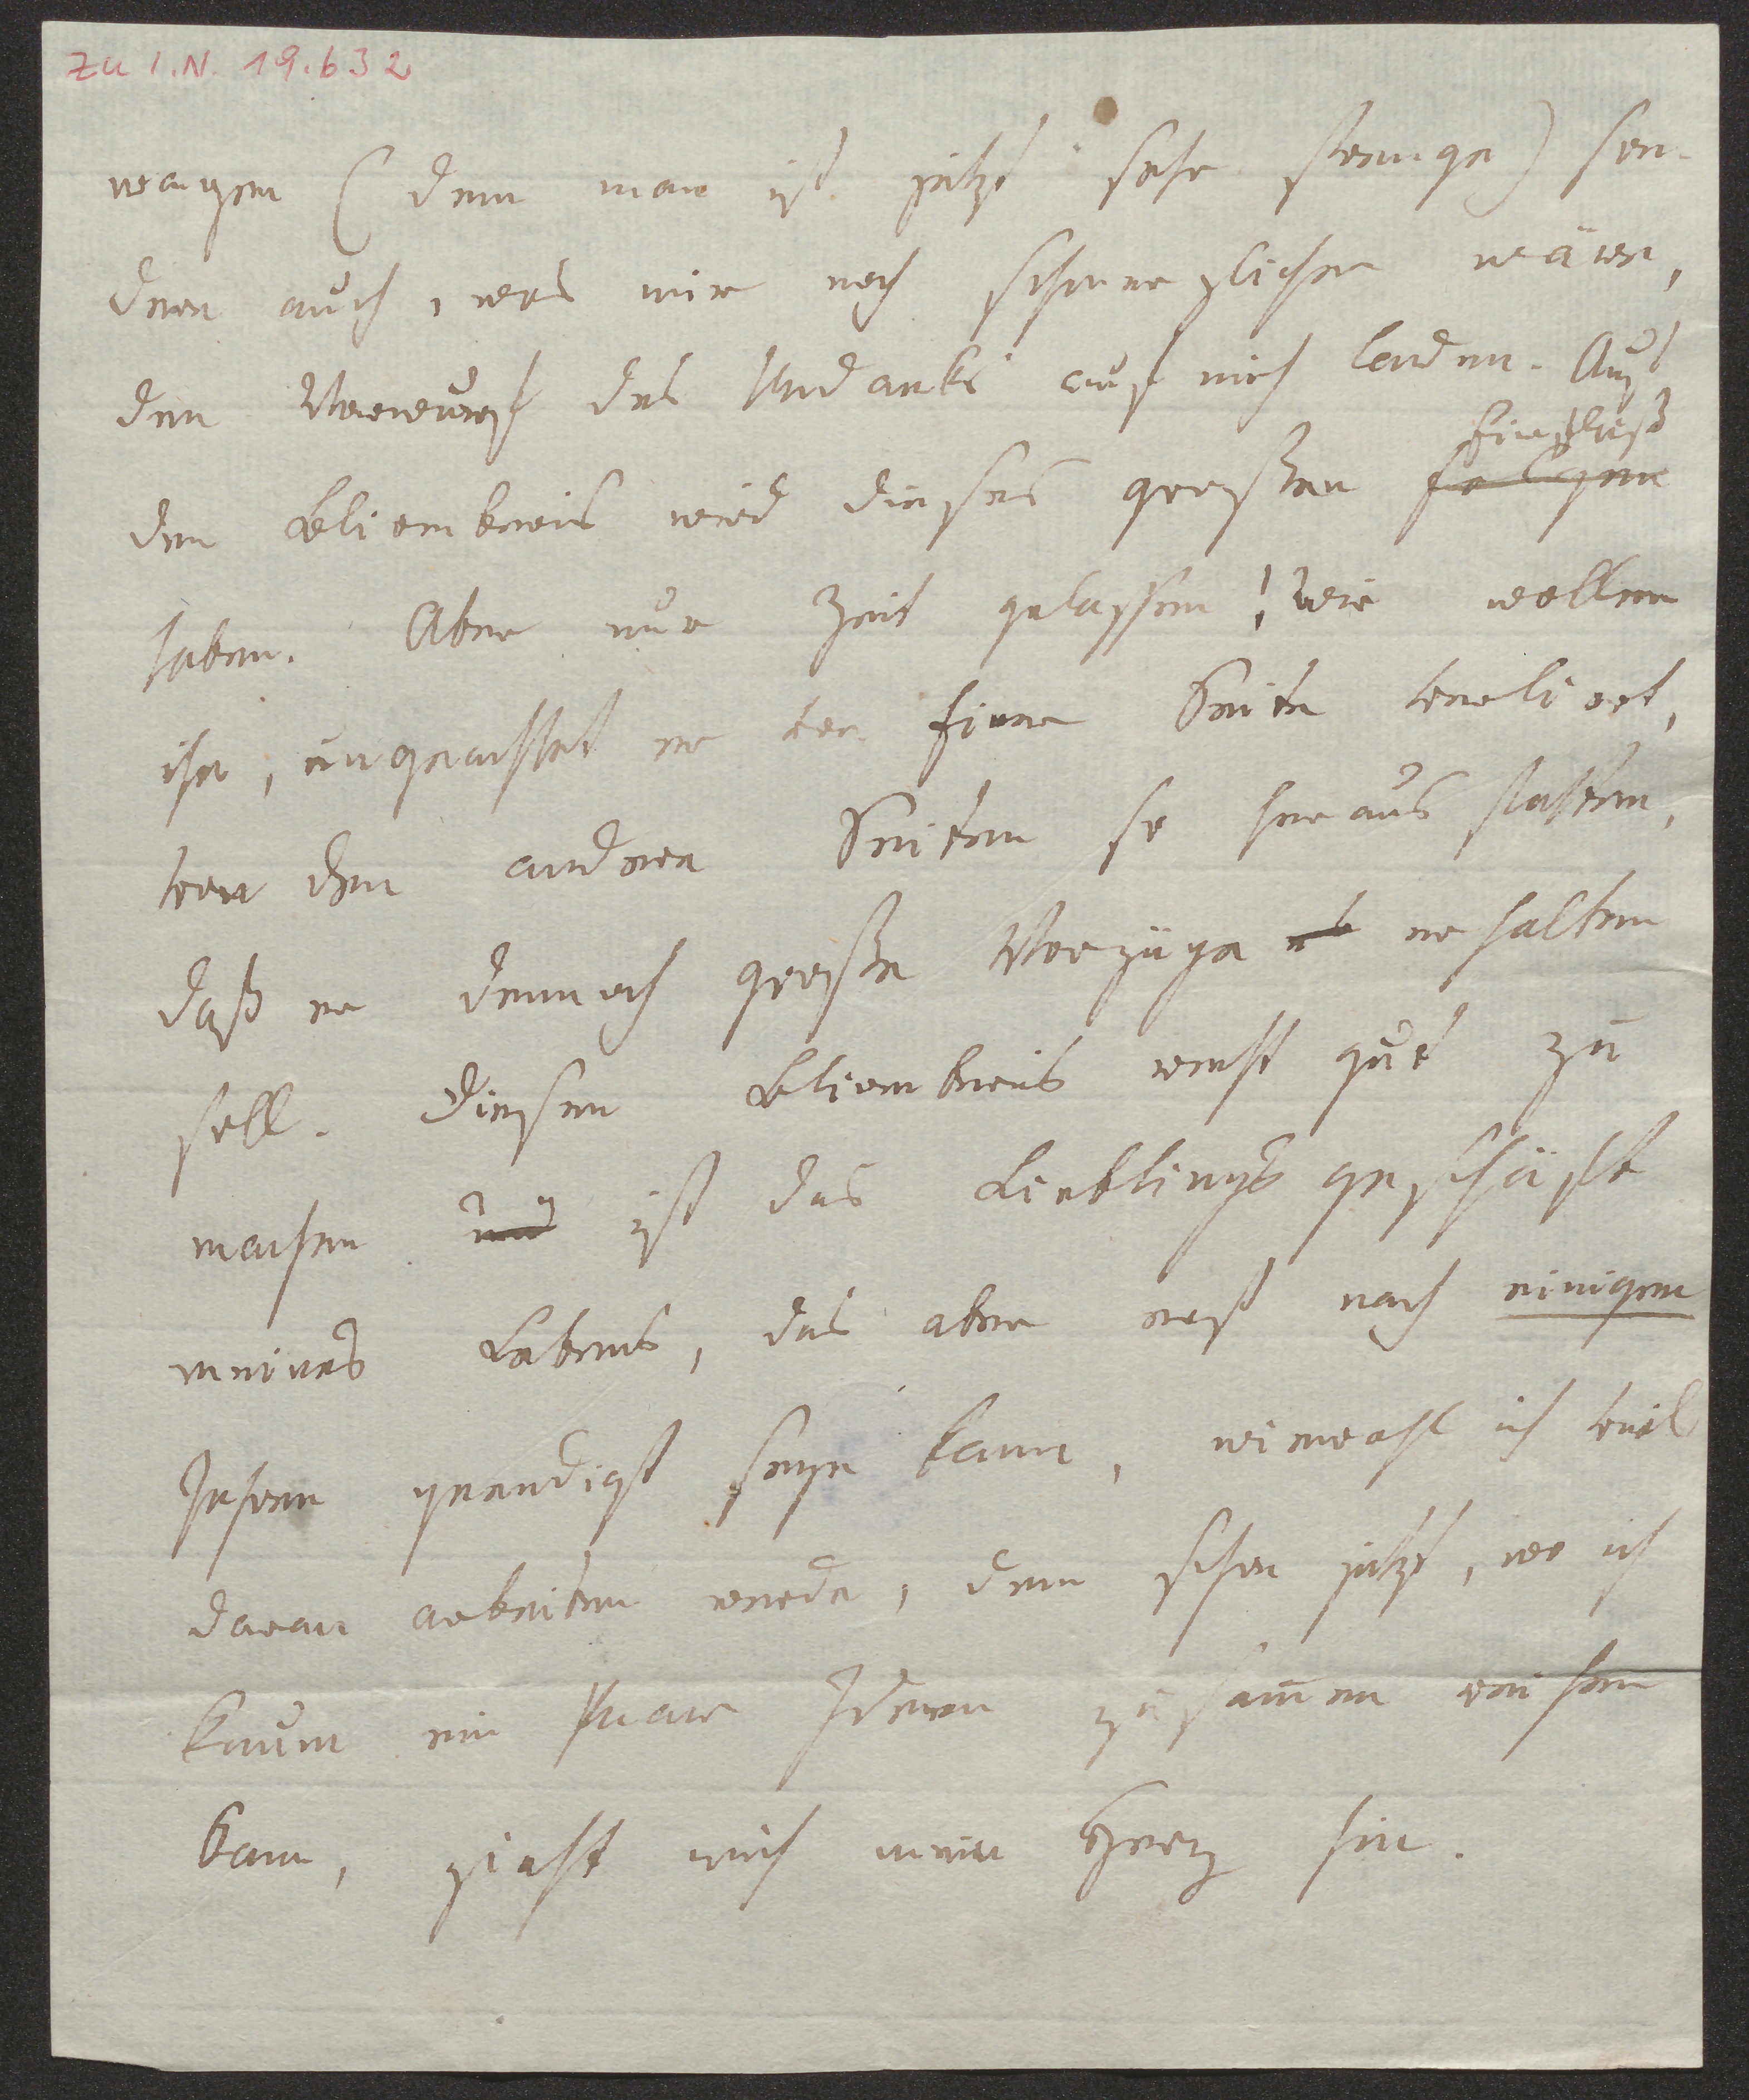 Zu I.N. 19.632
wagen (denn man ist jetzt sehr strenge) son-
dern auch, was mir noch schmerzlicher wäre,
den Vorwurf des Undanks auf mich laden. Auf
Einfluß
den Bliombneris wird dieses großen folgen
haben. Aber nur Zeit gelassen! Wir wollen
ihn, ungeachtet er von einer Seite verliert,
von den anderen Seiten so herausstatten,
daß er dennoch große Vorzüge erhalten
soll. Diesen Bliombneris recht gut zu
machen und ist das Lieblingsgeschäft
meines Lebens, das aber erst nach einigen
Jahren geendigt seyn kann, wiewohl ich viel
daran arbeiten werde, denn schon jetzt, wo ich
kaum ein Paar Ideen zusam̄en reihen
kann, zieht mich mein Herz hin.